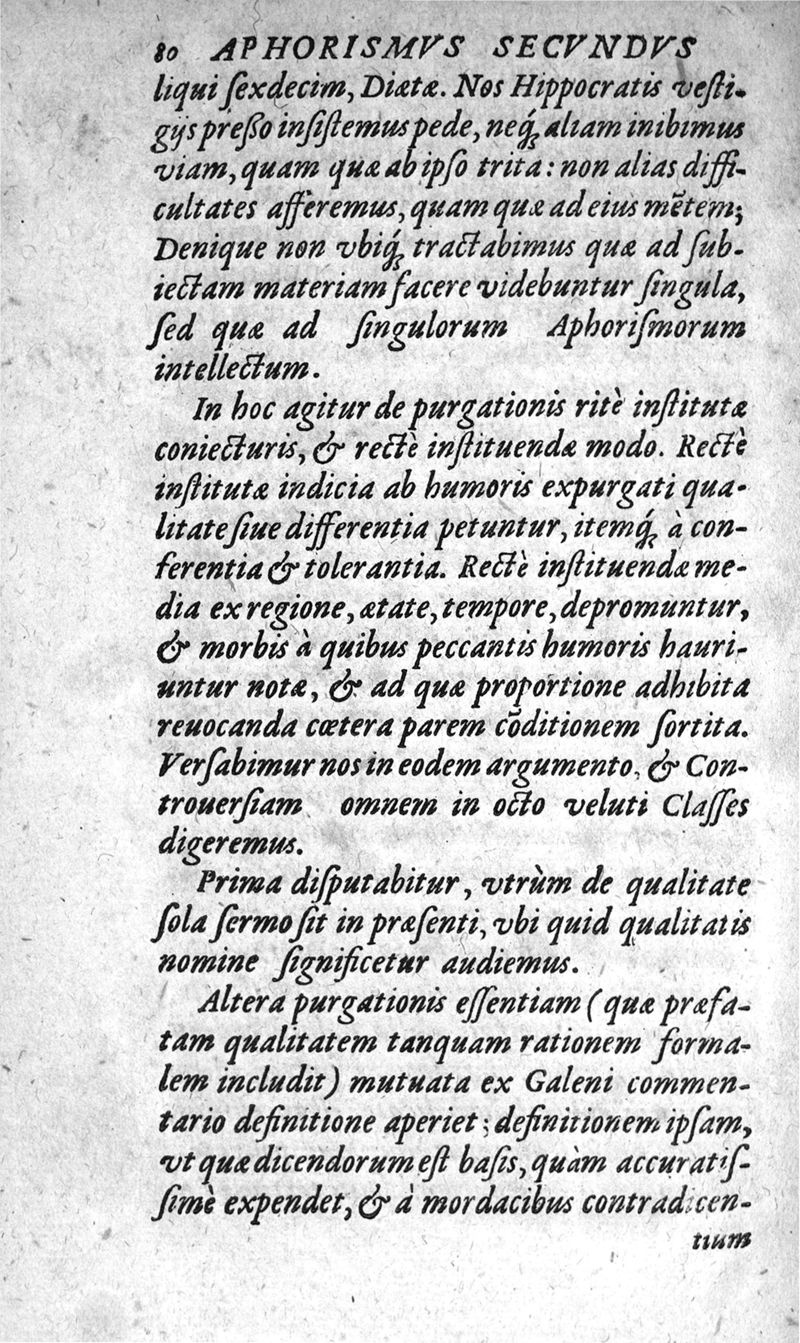 80 APHORISMVS SECVNDVS
liqui ſexdecim, Diætæ. Nos Hippocratis veſti-
gijs preßo inſiſtemus pede, neq́ʒ aliam inibimus
viam, quam quæ ab ipſo trita: non alias diffi-
cultates afferemus, quam quæ ad eius mētem;
Denique non vbiq́ʒ tractabimus quæ ad ſub-
iectam materiam facere videbuntur ſingula,
ſed quæ ad ſingulorum Aphoriſmorum
intellectum.
In hoc agitur de purgationis ritè inſtitutæ
coniecturis, & rectè inſtituendæ modo. Rectè
inſtitutæ indicia ab humoris expurgati qua-
litate ſiue differentia petuntur, itemq́ʒ à con-
ferentia & tolerantia. Rectè inſtituendæ me-
dia ex regione, ætate, tempore, depromuntur,
& morbis à quibus peccantis humoris hauri-
untur notæ, & ad quæ proportione adhibita
reuocanda cœtera parem cōditionem ſortita.
Verſabimur nos in eodem argumento, & Con-
trouerſiam omnem in octo veluti Claſſes
digeremus.
Prima diſputabitur, vtrùm de qualitate
ſola ſermo ſit in præſenti, vbi quid qualitatis
nomine ſignificetur audiemus.
Altera purgationis eſſentiam (quæ præfa-
tam qualitatem tanquam rationem forma-
lem includit) mutuata ex Galeni commen-
tario definitione aperiet; definitionem ipſam,
vt quæ dicendorum eſt baſis, quàm accuratiſ-
ſimè expendet, & à mordacibus contradicen-
tium